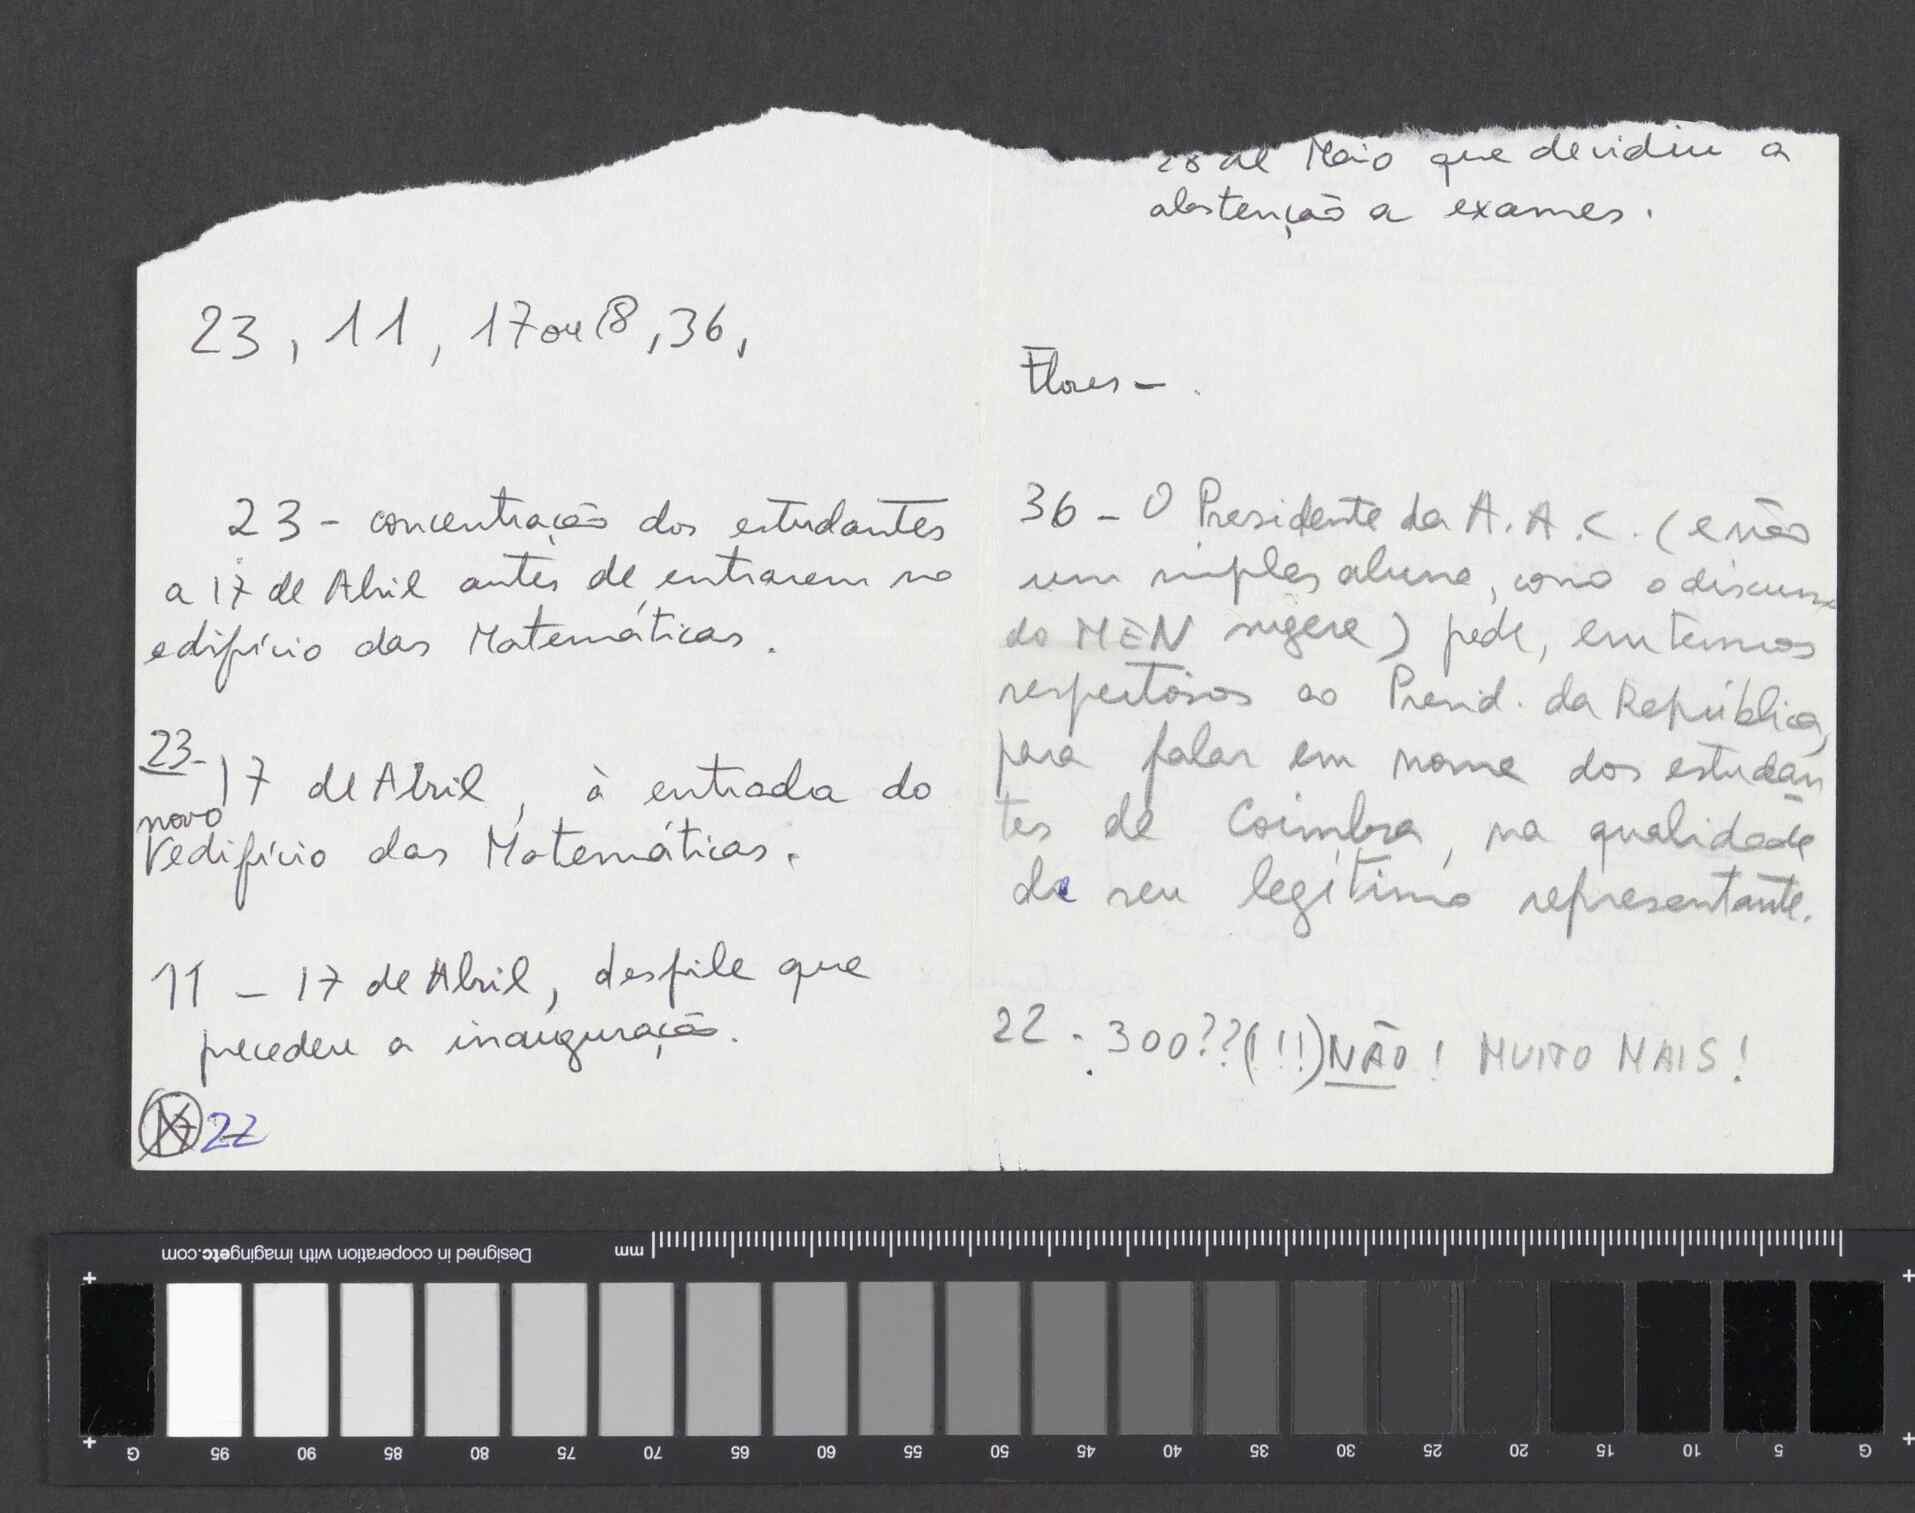 23, 11, 17 ou 18, 36,
23 - concentração dos estudantes
a 17 de Abril antes de entrarem no
edifício das Matemáticas.
23 - 17 de Abril, à entrada do
novo
edifício das Matemáticas.
11 - 17 de Abril, desfile que
precedeu a inauguração.
22
28 de Maio que decidiu a
abstenção a exames.
Flores - .
36 - O Presidente da A.A.C. (e não
um simples aluno, como o discurso
do MEN sugere) pede, em termos
respeitosos ao Presid. da República,
para falar em nome dos estudan
tes de Coimbra, na qualidade
de seu legítimo representante.
22 - 300??(!!!) NÃO! MUITO MAIS!
Designed in cooperation with imagingetc.com
mm
G 95 90 85 80 75 70 65 60 55 50 45 40 35 30 25 20 15 10 5 G